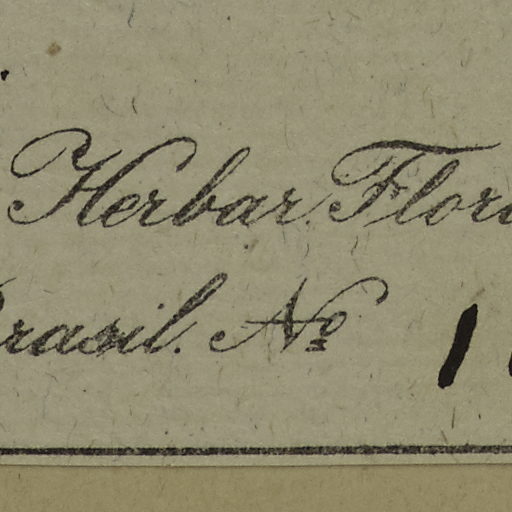 Herbar. Flora
Brasil. No 1